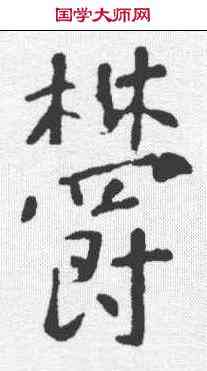 国学大师网
欝